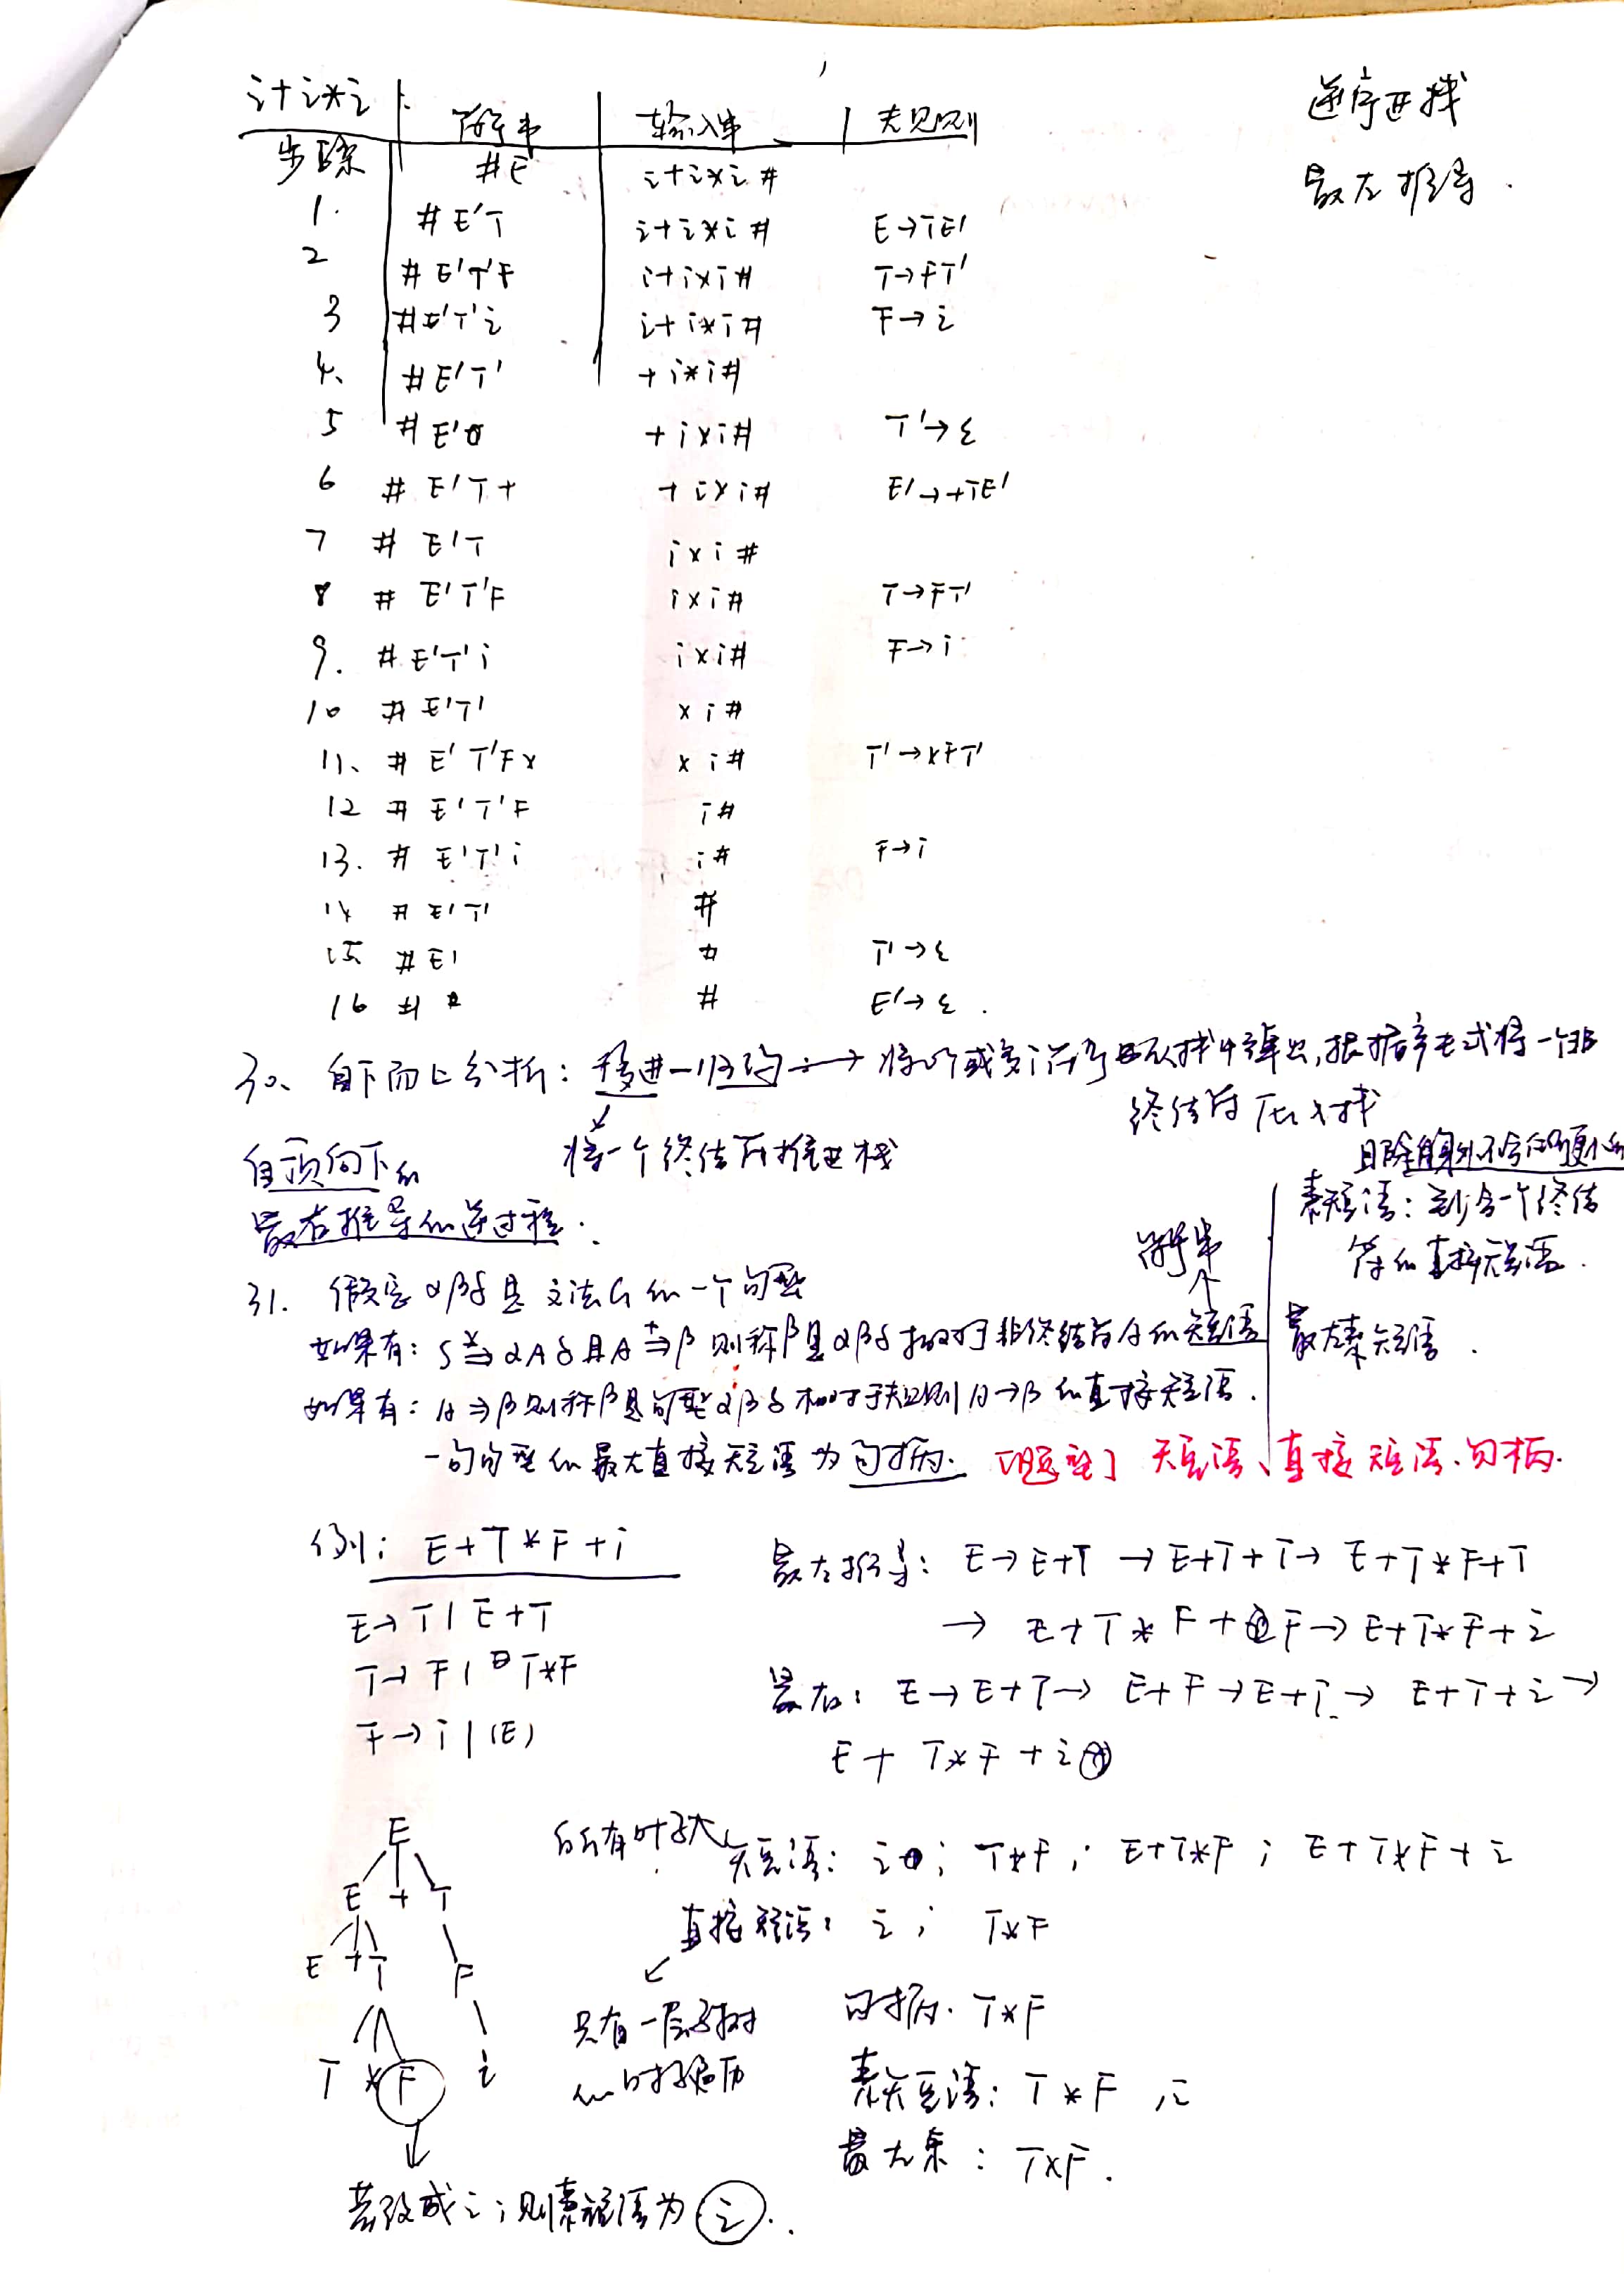 i+i*i 符号串 输入串 规则
步骤 #E i+i*i#
1. #E'T i+i*i# E→TE'
2 #E'T'F i+i*i# T→FT'
3 #E'T'i i+i*i# F→i
4、 #E'T' +i*i#
5 #E' +i*i# T'→ε
6 #E'T+ +i*i# E'→+TE'
7 #E'T i*i#
8 #E'T'F i*i# T→FT'
9. #E'T'i i*i# F→i
10 #E'T' *i#
11、 #E'T'F* *i# T'→*FT'
12 #E'T'F i#
13. #E'T'i i# F→i
14 #E'T' #
15 #E' # T'→ε
16 # # E'→ε.
逆序进栈
最左推导.
30、自下而上分析:移进—归约→将1个或多个符号从栈中弹出,根据产生式将一个非
终结符压入栈
将一个终结符推进栈
自顶向下的
最右推导的逆过程.
31. 假定αβδ是文法G的一个句型
如果有: S*⇒αAδ且A+⇒β 则称β是αβδ相对于非终结符A的短语
符号串
如果有: A⇒β则称β是句型αβδ相对于规则A→β的直接短语.
一句句型的最左直接短语为句柄. [题型] 短语、直接短语.句柄.
且除自身外不含的更小的
素短语:至少含一个终结
符的直接短语.
最左素短语.
例: E+T*F+i
E→T|E+T
T→F|T*F
F→i|(E)
最左推导: E→E+T→E+T+T→E+T*F+T
→E+T*F+F→E+T*F+i
最右: E→E+T→E+F→E+i→E+T+i→
E+T*F+i
E
E + T
E + T F
T * F i
若改成i;则素短语为i..
所有叶子 短语: i; T*F; E+T*F; E+T*F+i
直接短语: i; T*F
只有一层子树
的叶子遍历
句柄. T*F
素短语: T*F ,i
最左素: T*F.